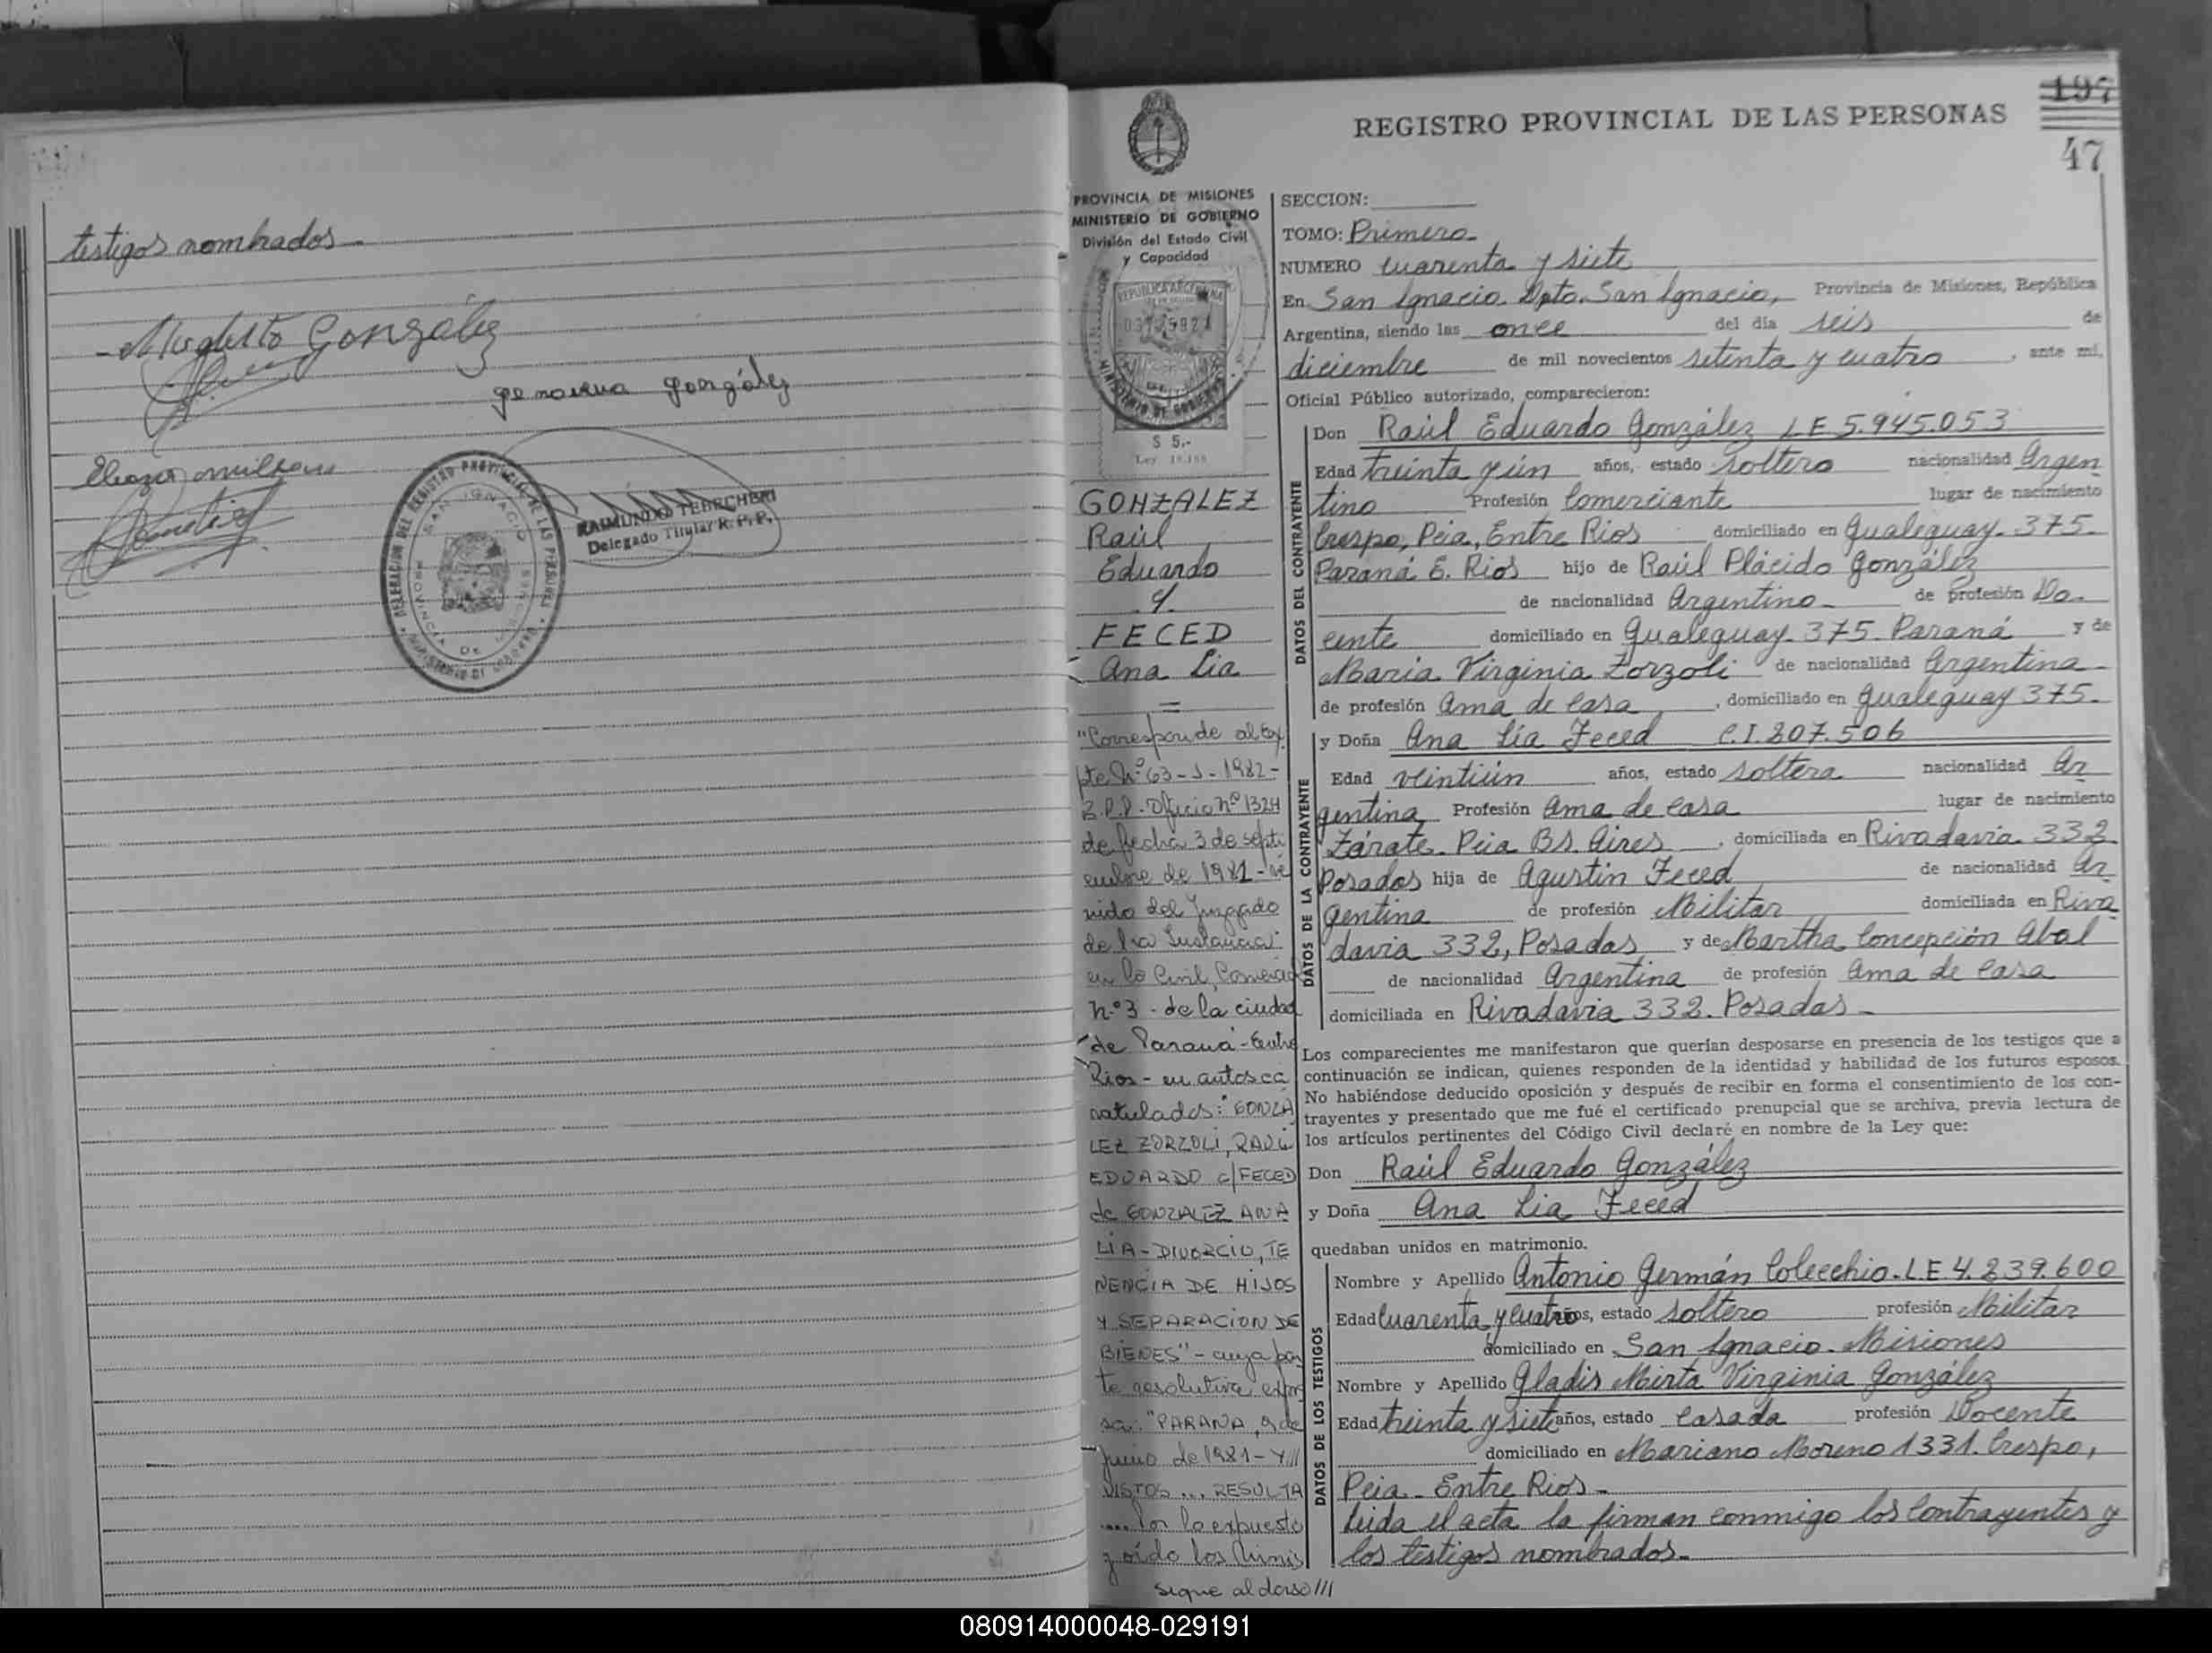 testigos nombrados.-
Gonzalez
genoveva gonzález
Eleazar
DELEGACION DEL REGISTRO PROVINCIAL DE LAS PERSONAS
SAN IGNACIO
PROVINCIA DE
MINISTERIO DE GOBIERNO
RAIMUNDO TEBECHERI
Delegado Titular R. P. P.
197
REGISTRO PROVINCIAL DE LAS PERSONAS
47
PROVINCIA DE MISIONES
MINISTERIO DE GOBIERNO
División del Estado Civil
y Capacidad
REPUBLICA ARGENTINA
MINISTERIO DE GOBIERNO
$ 5.-
Ley
GONZALEZ
Raúl
Eduardo
y.
FECED
Ana Lia
=
"Corresponde al Ex
pte Nº 63-J-1982-
R.P.P. Oficio nº 1324
de fecha 3 de septi
embre de 1981-ve
nido del Juzgado
de 1ra Instancia
en lo Civil, Comercial
nº 3 - de la ciudad
de Paraná - Entre
Rios - en autos ca
ratulados: "GONZA
LEZ ZORZOLI, RAUL
EDUARDO c/ FECED
de GONZALEZ ANA
LIA - DIVORCIO, TE
NENCIA DE HIJOS
Y SEPARACION DE
BIENES" - cuya par
te resolutiva expre
sa: "PARANA, 9 de
junio de 1981 - Y ///
VISTOS ... RESULTA
.... Por lo expuesto
y oido los Minis
sigue al dorso ///
SECCION:
TOMO: Primero.
NUMERO cuarenta y siete
En San Ignacio. Dpto. San Ignacio, Provincia de Misiones, República
Argentina, siendo las once del día seis de
diciembre de mil novecientos setenta y cuatro, ante mí,
Oficial Público autorizado, comparecieron:
DATOS DEL CONTRAYENTE
Don Raúl Eduardo González LE 5.945.053
Edad treinta y ún años, estado soltero nacionalidad Argen
tino Profesión Comerciante lugar de nacimiento
Crespo, Pcia, Entre Rios domiciliado en Gualeguay. 375.
Paraná E. Rios hijo de Raúl Plácido González
de nacionalidad Argentino. de profesión Do.
cente domiciliado en Gualeguay. 375. Paraná y de
Maria Virginia Zorzoli de nacionalidad Argentina.
de profesión Ama de Casa, domiciliado en Gualeguay 375.
DATOS DE LA CONTRAYENTE
y Doña Ana Lía Feced C.I. 207.506
Edad veintiún años, estado soltera nacionalidad Ar
gentina, Profesión Ama de Casa lugar de nacimiento
Zárate. Pcia Bs. Aires, domiciliada en Rivadavia. 332
Posadas hija de Agustín Feced de nacionalidad Ar
gentina de profesión Militar domiciliada en Riva
davia 332, Posadas y de Martha Concepción Abal
de nacionalidad Argentina de profesión Ama de Casa
domiciliada en Rivadavia 332. Posadas.-
Los comparecientes me manifestaron que querían desposarse en presencia de los testigos que a
continuación se indican, quienes responden de la identidad y habilidad de los futuros esposos.
No habiéndose deducido oposición y después de recibir en forma el consentimiento de los con-
trayentes y presentado que me fué el certificado prenupcial que se archiva, previa lectura de
los artículos pertinentes del Código Civil declaré en nombre de la Ley que:
Don Raúl Eduardo González
y Doña Ana Lia Feced
quedaban unidos en matrimonio.
DATOS DE LOS TESTIGOS
Nombre y Apellido Antonio Germán Colecchio. L.E 4.239.600
Edad Cuarenta y cuatro años, estado soltero profesión Militar
domiciliado en San Ignacio. Misiones
Nombre y Apellido Gladis Mirta Virginia González
Edad treinta y siete años, estado casada profesión Docente
domiciliado en Mariano Moreno 1331. Crespo,
Pcia. Entre Rios.-
Leida el acta la firman conmigo los Contrayentes y
los testigos nombrados.-
080914000048-029191